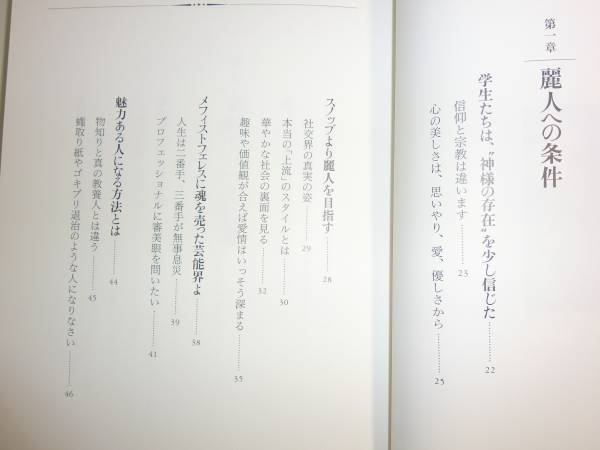 第一章
麗人への条件
学生たちは、“神様の存在”を少し信じた………22
信仰と宗教は違います………23
心の美しさは、思いやり、愛、優しさから………25
スノッブより麗人を目指す………28
社交界の真実の姿………29
本当の「上流」のスタイルとは………30
華やかな社会の裏面を見る………32
趣味や価値観が合えば愛情はいっそう深まる………35
メフィストフェレスに魂を売った芸能界よ………38
人生は二番手、三番手が無事息災………39
プロフェッショナルに審美眼を問いたい………41
魅力ある人になる方法とは………44
物知りと真の教養人とは違う………45
蠅取り紙やゴキブリ退治のような人になりなさい………46